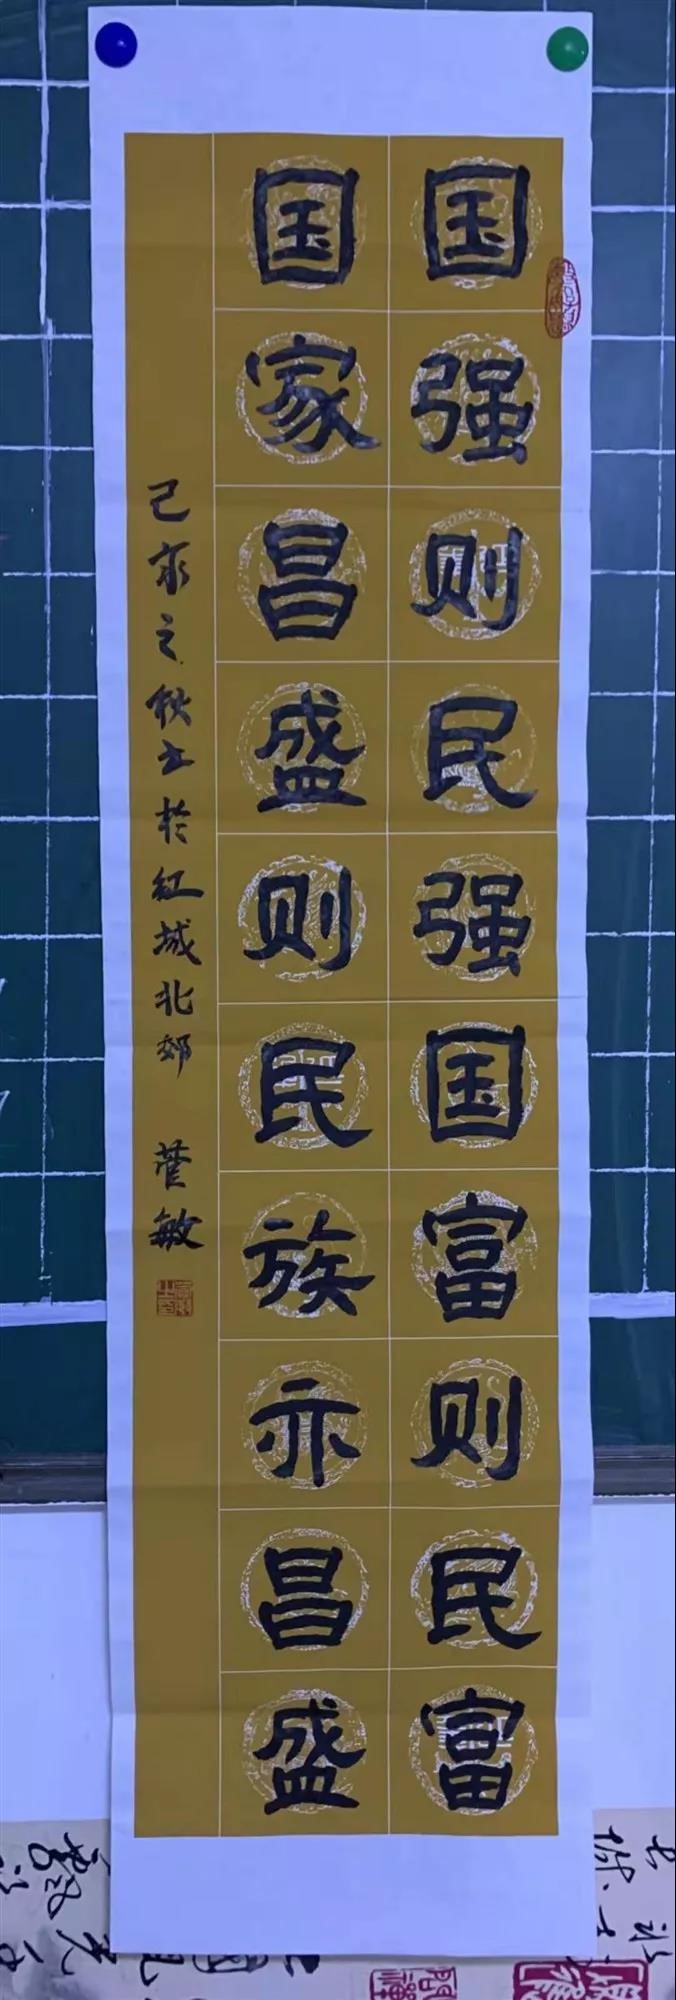 国强则民强国富则民富
国家昌盛则民族亦昌盛
己亥之秋书於红城北郊 管敏